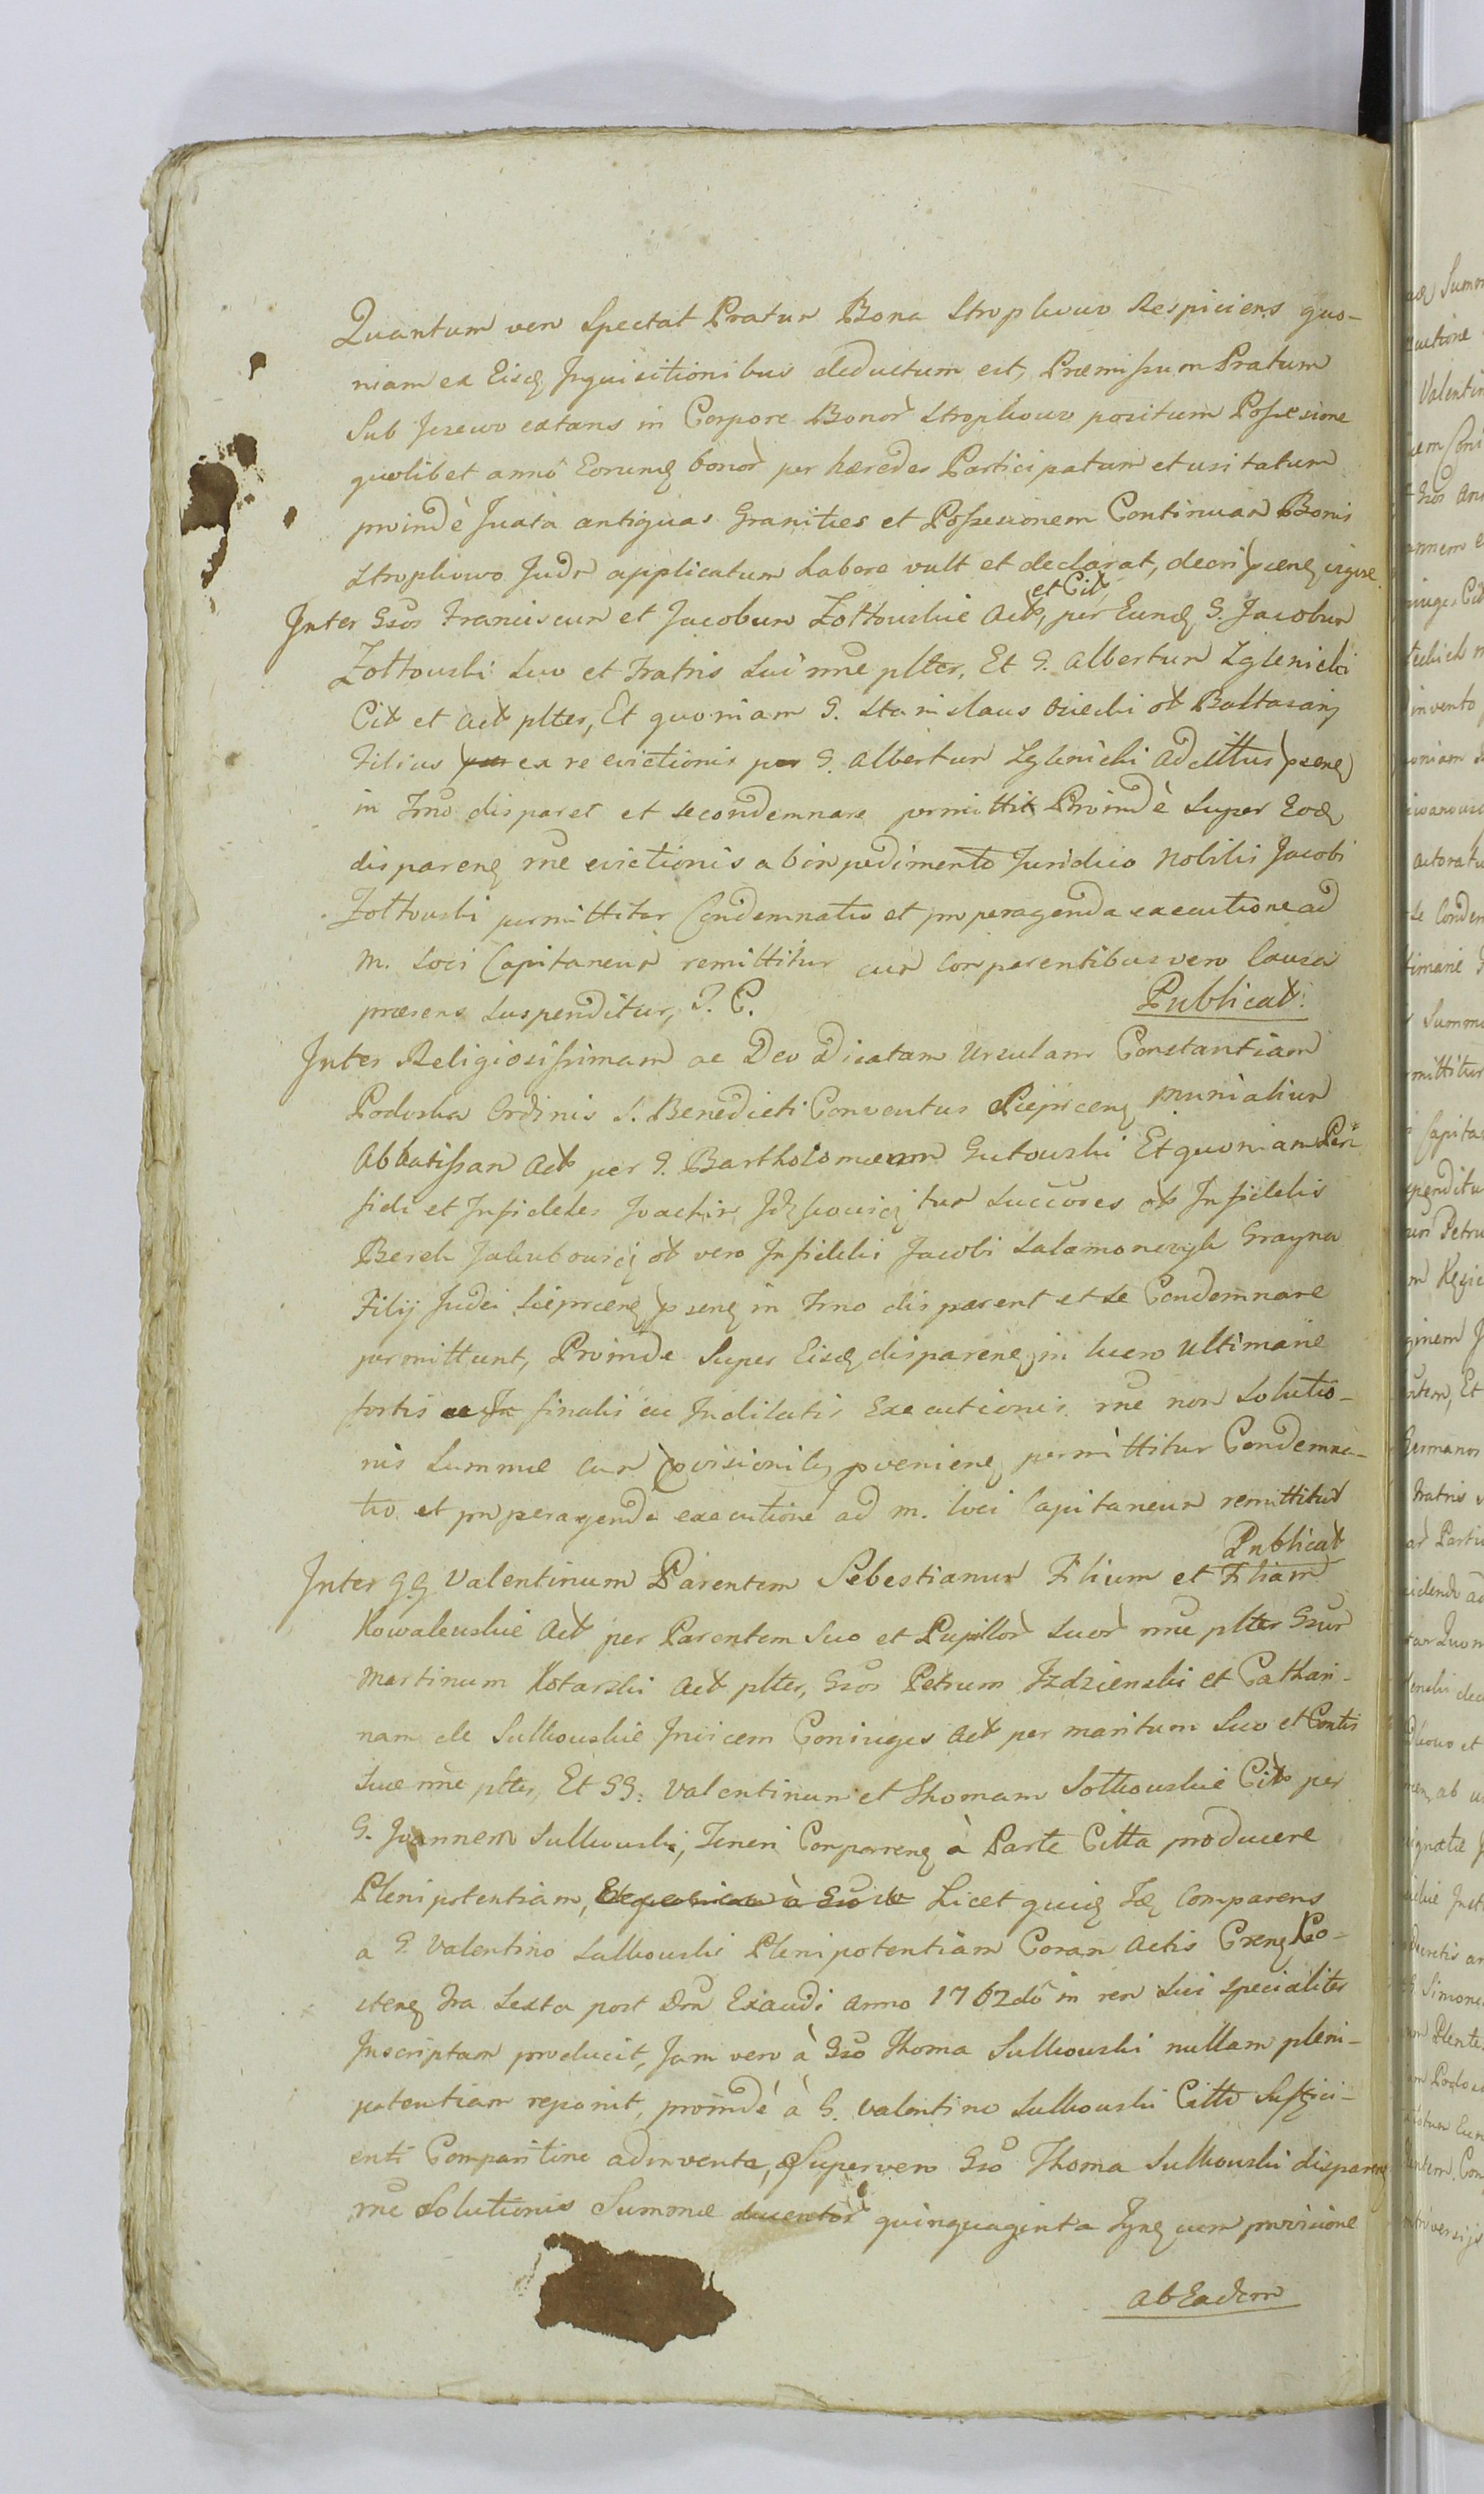 Quantum vero Spectat Pratum Bona Strophowo Respiciens quo-
niam ex Eisdq Inquisitionibus deductum est, Præmissum Pratum
Sub Jezewo extans in Corpore Bonor Strophowo positum Possesione
quolibet anno Eorumq bonor per hæredes Participatum et usitatum
proindè Juxta antiquas Granities et Possesionem Continuar Bonis
Strophowo Judm applicatum habere vult et declarat, decri pseng vigore
Inter Gsos Franciscum et Jacobum Zołtowskie Act, et Cit per Eundq G. Jacobum
Zołtowski Suo et Fratris Sui nne plter, Et G. Albertum Zglenicki
Cit et Act plter, Et quoniam G. Stanislaus Osiecki ot Baltasarij
Filius ex re evictionis per G. Albertum Zglenicki ad cittus pseng
in Tno disparet et se condemnare permittit Proindè Super Eodq
dispareng rne evictionis ab inpedimento Juridico Nobilis Jacobi
Zołtowski permittitur Condemnatio et pro peragenda executione ad
m. Loci Capitaneum remittitur cum Comparentibus vero Causa
præsens Suspenditur, J. C. Publicat:
Inter Religiosissimam ac Deo Dicatam Ursulam Constantiam
Podoska Ordinis S. Benedicti Conventus Sieprceng Munialium
Abbatissam Act per G. Bartholomæum Gutowski Et quoniam Per-
fidi et Infideles Joachim Jckowicz tum Succores ot Infidelis
Berek Jakubowicz ot vero Infidelis Jacobi Salamonczyk Grayna
Filij Judei Sieprceng pseng in Tno disparent et se Condemnare
permittunt, Proinde Super Eisdq dispareng in lucro Ultimarie
fortis finalis ac Indilatis Executionis rne non Solutio-
nis Summæ cum provisionibq proveniens permittitur Condemna-
tio et pro peragenda executione ad m. loci Capitaneum remittitur
Publicat
Inter G.G. Valentinum Parentem Sebestianum Filium et Filiam
Kowalewskie Act per Parentem Suo et Pupillor Suor nne plter Gsum
Martinum Kotarski Act plter, Gsos Petrum Izdzienski et Cathari-
nam de Sulkowskie Invicem Coniuges Act per maritum Suo et Contis
Suæ nne plter, Et GG. Valentinum et Thomam Sołkowskie Cit per
G. Joannem Sulkowski, Teneri Compareng à Parte Citta producere
Plenipotentiam, Licet quidq Idq Comparens
a G. Valentino Sulkowski Plenipotentiam Coram Actis Creng Plo-
ceng Fra Sexta post Dom Exaudi Anno 1762do in rem Sui Specialiter
Inscriptam producit, Jam vero à Gso Thoma Sulkowski nullam pleni-
potentiam reponit, proindé à G. Valentino Sulkowski Citto Suffici-
enti Comparitione adinventa, Super vero Gso Thoma Sulkowski dispareng
rne Solutionis Summæ ducentor quinquaginta Tyng cum provisione
ab Eadem